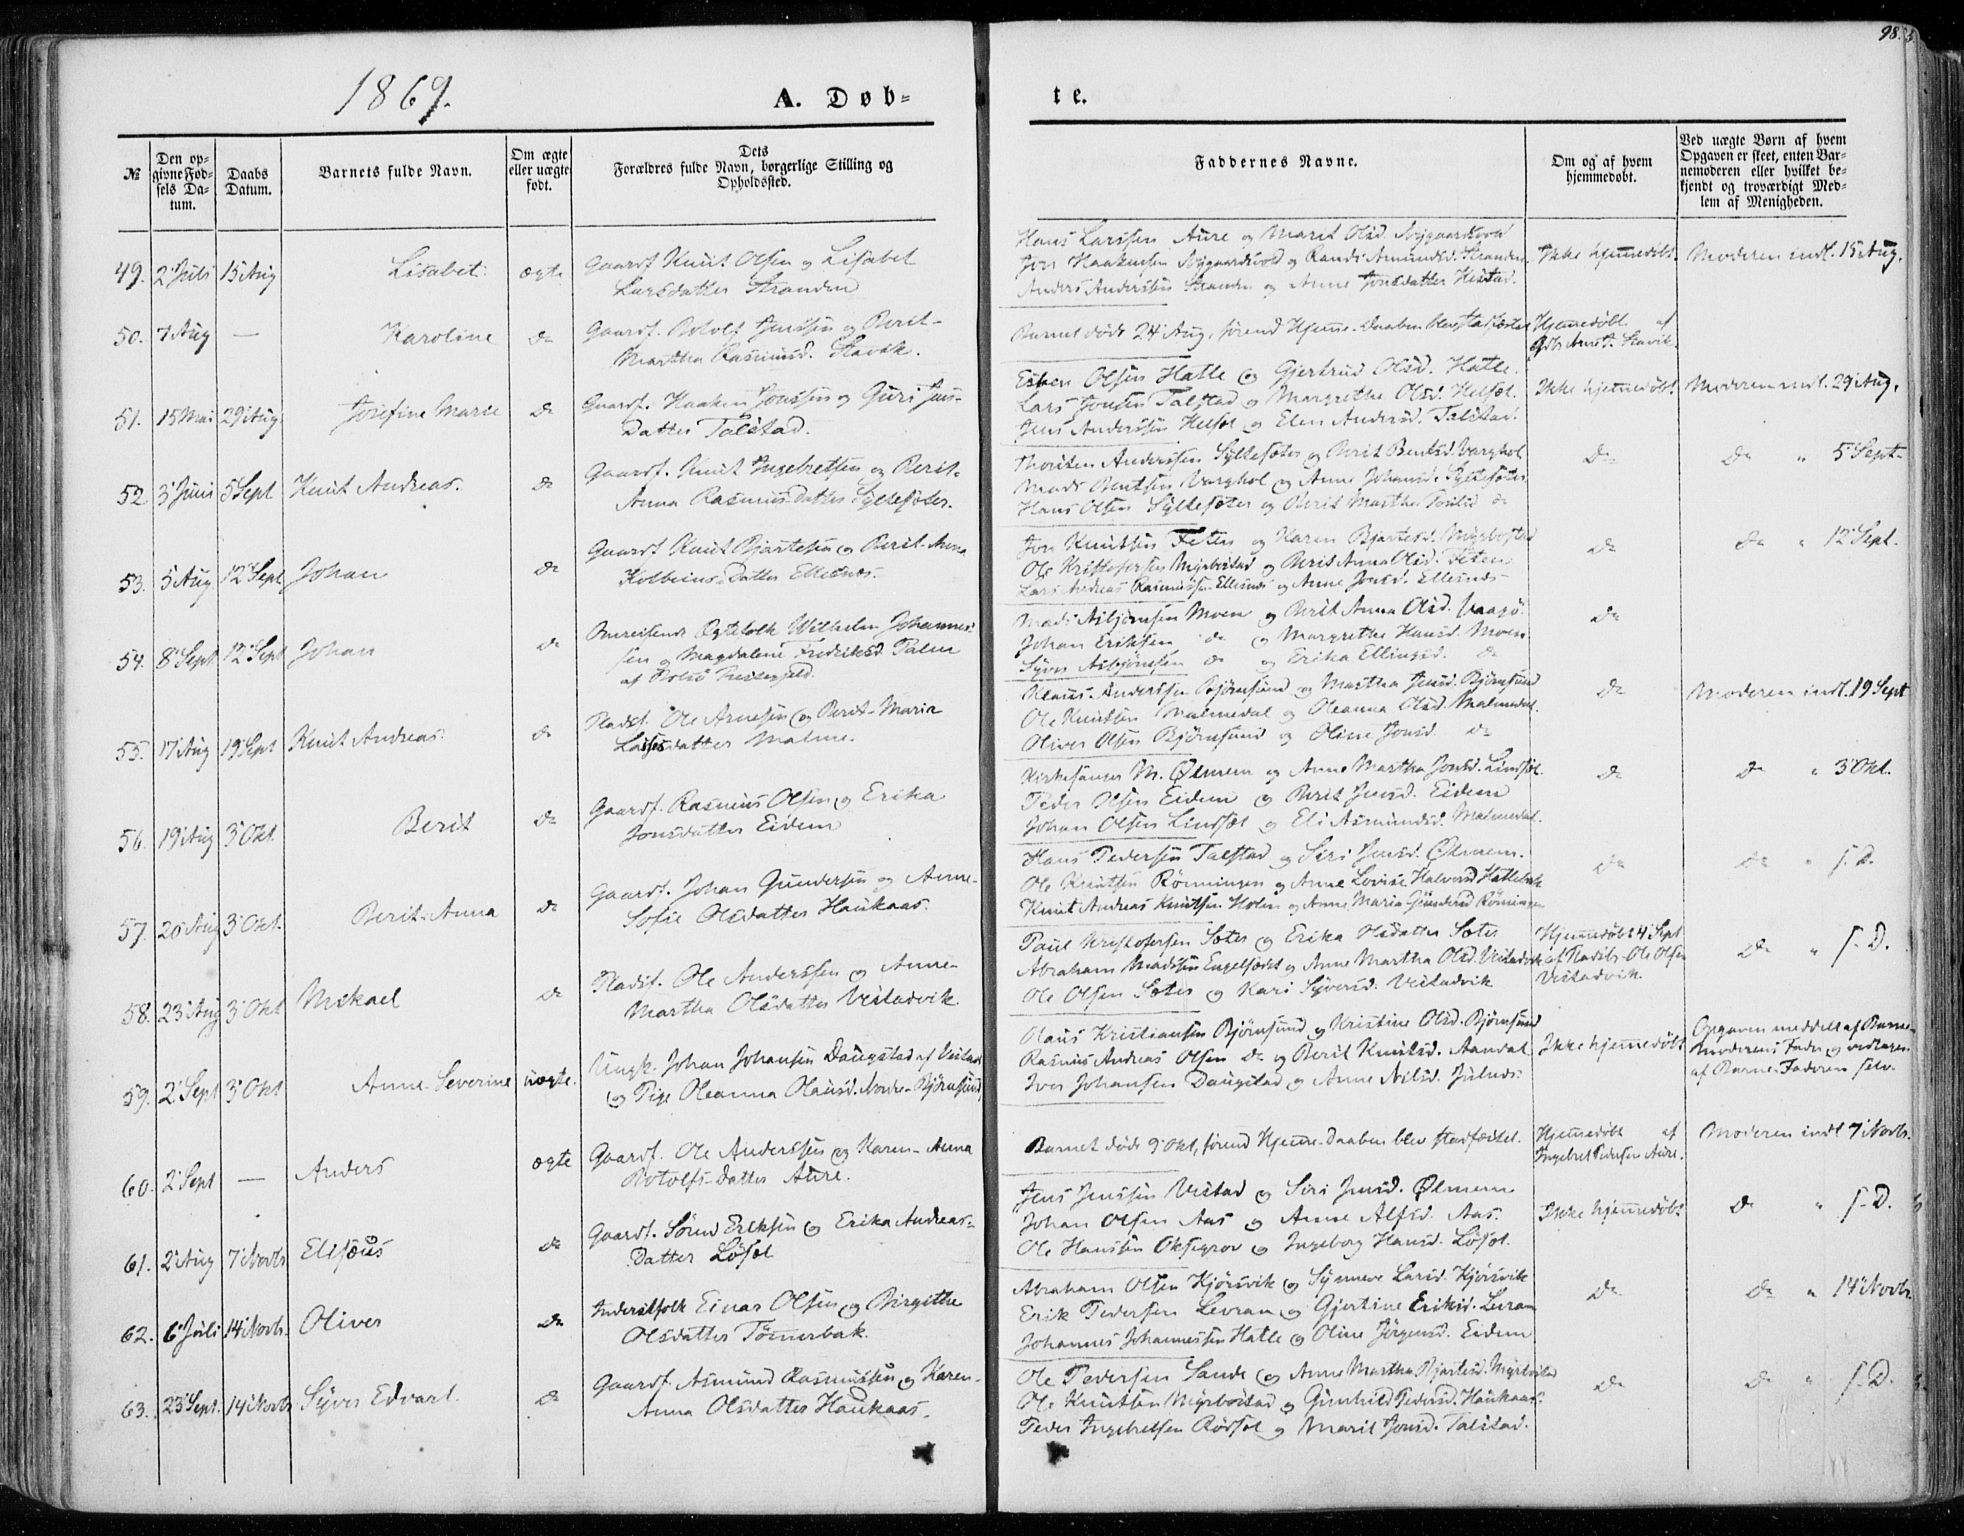 98.
1869.
A. Døb=
te.
№
Den op=
givne Fød=
sels Da=
tum.
Daabs
Datum.
Barnets fulde Navn.
Om ægte
eller uægte
født.
Dets
Forældres fulde Navn, borgerlige Stilling og
Opholdssted.
Faddernes Navne.
Om og af hvem
hjemmedøbt.
Ved uægte Børn af hvem
Opgaven er skeet, enten Bar=
nemoderen eller hvilket be=
kjendt og troværdigt Med=
lem af Menigheden.
49. 2 Juli 15 Aug Lisabet ægte Gaardf. Knut Olsen og Lisabet
Larsdatter Stranden
Hans Larssen Aure og Marit Olsd. Nygaardsvold
Jon Haakensen Nygaardsvold og Randi Amundsd. Stranden
Anders Anderssen Stranden og Anne Jonsdatter Hestad.
Ikke hjemmedøbt. Moderen indl. 15 Aug.
50. 7 Aug — Karoline Do Gaardf. Rotolf Jenssen og Berit-
Martha Rasmusd. Stavik.
Barnet døde 24 Aug. førend Hjemme-Daaben blev stadfæstet
Hjemmedøbt af
Stavik.
51. 15 Mai 29 Aug Josefine Marie Do Gaardf. Haaken Jonssen og Guri Jens-
Datter Talstad.
Esten Olsen Hatle og Gjertrud Olsd. Hatle.
Lars Jonsen Talstad og Margrethe Olsd. Helsøt.
Jens Anderssen Helsøt og Elen Andersd. Talstad.
Ikke hjemmedøbt. Moderen indl. 29 Aug.
52 3 Juni 5 Sept Knut Andreas. Do Gaardf. Knut Ingebretsen og Berit-
Anna Rasmusdatter Syltesæter.
Thorsten Anderssen Syltesæter og Berit Bentsd. Varghol
Mads Bentsen Varghol og Anne Johansd. Syltesæter
Hans Olsen Syltesæter og Berit Martha do
Do Do " 5 Sept.
53. 5 Aug 12 Sept Johan Do Gaardf Knut Bjartesen og Berit-Anna
Kolbeinsdatter Ellesnæs.
Jon Knutsen Feten og Karen Bjartesd. Myrbostad
Ole Kristofersen Myrbostad og Berit Anna Olsd. Feten
Lars Andreas Rasmussen Ellesnæs og Anne Jonsd. Ellesnæs
Do Do " 12 Sept.
54. 8 Sept 12 Sept Johan Do Omreisende Ægtefolk Wilhelm Johannes-
sen og Magdalene Fredriksd. Palm
af Bolsø Præstegjeld.
Mads Asbjørnsen Moen og Berit Anna Olsd. Vaagø
Johan Eriksen do og Margrethe Hansd. Moen
Syver Asbjørnsen do og Erika Ellingsd. do
Do
55. 17 Aug 19 Sept Knut Andreas. Do Pladsf. Ole Arnesen og Berit-Maria
Lassesdatter Malme.
Klaus Anderssen Bjørnsund og Martha Jensd. Bjørnsund
Ole Knutsen Malmedal og Oleanna Olsd. Malmedal.
Oliver Olsen Bjørnsund og Oline Jonsd. do
Do Moderen indl. 19 Sept
56. 19 Aug 3 Okt. Berit Do Gaardf. Rasmus Olsen og Erika
Jonsdatter Eidem
Kirkesanger M. Ølmem og Anne Martha Jonsd. Lindsæt.
Peder Olsen Eidem og Berit Jensd. Eidem
Johan Olsen Lindsæt og Eli Asmundsd. Malmedal.
Do Do " 3 Okt.
57. 20 Aug 3 Okt. Berit-Anna Do Gaardf. Johan Gundersen og Anne-
Sofie Olsdatter Haukaas
Hans Pedersen Talstad og Siri Jensd. Ølmem.
Ole Knutsen Rønningen og Anne Lovise Halvorsd Hattebak
Knut Andreas Knutsen Holen og Anne Maria Gundersd Rønningen
Do Do " s. D.
58. 23 Aug 3 Okt Mikael Do Pladsf. Ole Anderssen og Anne-
Martha Olsdatter Vestadvik.
Paul Kristofersen Sæter og Erika Olsdatter Sæter
Abraham Madssen Engelsædet og Anne Martha Olsd. Vestadvik
Ole Olsen Sæter og Kari Syversd. Vestadvik
Hjemmedøbt 4 Sept
af Pladsbr. Ole Olsen
Vestadvik
Do " s. D.
59. 2 Sept 3 Okt Anne-Severine uægte. Ungk. Johan Johansen Daugstad af Vestad
og Pige Oleanna Olausd. Nordre-Bjørnsund
Olaus Kristiansen Bjørnsund og Kristine Olsd. Bjørnsund
Rasmus Andreas Olsen do og Berit Knutsd. Aandal
Iver Johansen Daugstad og Anne Nilsd. Julnæs.
Ikke hjemmedøbt
Opgaven meddelt af Barne-
moderens Fader og vedtagen
af Barne-Faderen selv.
60. 2 Sept — Anders ægte Gaardf. Ole Anderssen og Karen-Anna
Rotolfs-Datter Aure.
Barnet døde 9 Okt, førend Hjemme-Daaben blev stadfæstet.
Hjemmedøbt af
Ingebret Pedersen Aure.
Moderen indl 7 Novb.
61. 2 Aug 7 Novb. Elisæus Do Gaardf. Sørend Eriksen og Erika Andreas-
Datter Løsæt
Jens Jenssen Vestad og Siri Jensd. Ølmem
Johan Olsen Aas og Anne Alfsd. Aas.
Ole Hanssen Oksegrov og Ingeborg Hansd. Løsæt.
Ikke hjemmedøbt Do " s. D.
62. 6 Juli 14 Novb. Oliver Do Inderstfolk Einar Olsen og Birgitha
Olsdatter Tømmerbak.
Abraham Olsen Kjørsvik og Synneve Larsd. Kjørsvik
Erik Pedersen Levram og Gjertine Eriksd. Levram
Johannes Johannessen Hatle og Oline Jørgensd. Eidem
Do Do " 14 Novb.
63. 23 Sept. 14 Novb Syver Edvart. Do Gaardf. Asmund Rasmussen og Karen-
Anna Olsdatter Haukaas.
Ole Pedersen Sande og Anne Martha Bjartesd. Myrbostad
Ole Knutsen Myrbostad og Gunhild Pedersd. Haukaas.
Peder Ingebretsen Rødsæt og Marit Jonsd. Talstad.
Do Do " s. D.